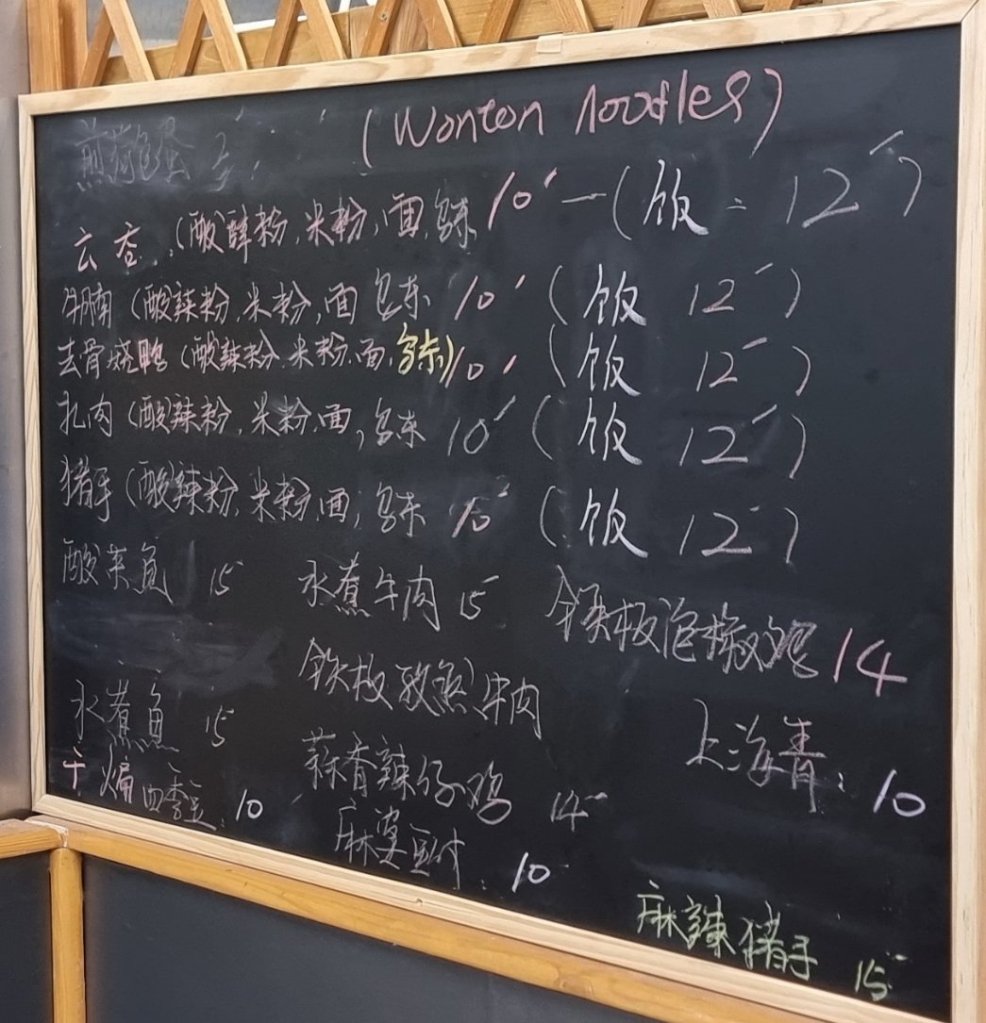 (Wonton noodles)
煎荷包蛋
云吞 (酸辣粉, 米粉, 面, 乌东 10 — (饭: 12)
牛腩 (酸辣粉, 米粉, 面 乌东 10 (饭 12)
去骨烧鸭 (酸辣粉, 米粉, 面, 乌东) 10 (饭 12)
扎肉 (酸辣粉, 米粉, 面, 乌东 10 (饭 12)
猪手 (酸辣粉, 米粉, 面, 乌东 10 (饭 12)
酸菜鱼 15 水煮牛肉 15 铁板泡椒鸡 14
铁板孜然牛肉
水煮鱼 15 上海青: 10
干煸四季豆. 10 蒜香辣仔鸡 14
麻婆豆付. 10
麻辣猪手 15